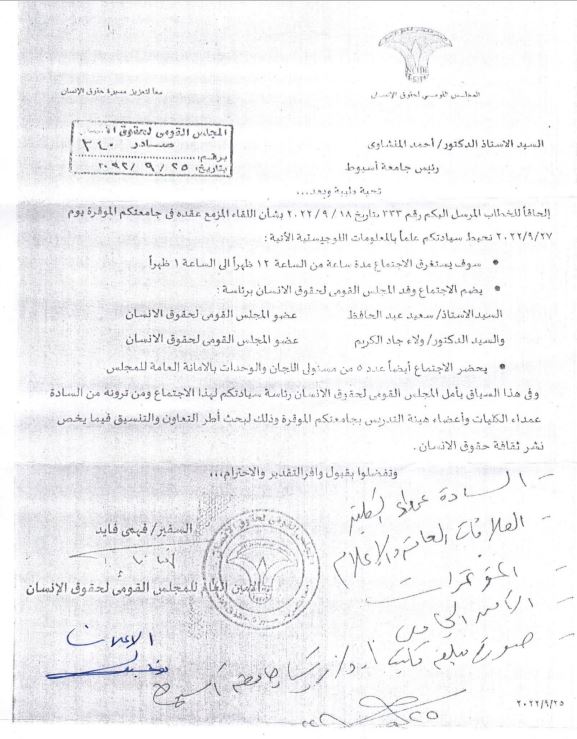 NCHR
المجلس القومي لحقوق الإنسان
معا لتعزيز مسيرة حقوق الإنسان
المجلس القومى لحقوق الإنسان
صادر ٣٤٠
برقم:
بتاريخ: ٢٥ / ٩ / ٢٠٢٢
السيد الاستاذ الدكتور/ أحمد المنشاوى
رئيس جامعة أسيوط
تحية طيبة وبعد...
إلحاقاً للخطاب المرسل اليكم رقم ٣٣٣ بتاريخ ١٨ / ٩ / ٢٠٢٢ بشأن اللقاء المزمع عقده فى جامعتكم الموقرة يوم
٢٠٢٢/٩/٢٧ نحيط سيادتكم علماً بالمعلومات اللوجيستية الأتية :
• سوف يستغرق الاجتماع مدة ساعة من الساعة ١٢ ظهراً الى الساعة ١ ظهراً
• يضم الاجتماع وفد المجلس القومى لحقوق الانسان برئاسة :
السيد الاستاذ/ سعيد عبد الحافظ عضو المجلس القومى لحقوق الانسان
والسيد الدكتور/ ولاء جاد الكريم عضو المجلس القومى لحقوق الانسان
• يحضر الاجتماع أيضاً عدد ٥ من مسئولى اللجان والوحدات بالامانة العامة للمجلس
وفى هذا السياق يأمل المجلس القومى لحقوق الانسان رئاسة سيادتكم لهذا الاجتماع ومن ترونه من السادة
عمداء الكليات وأعضاء هيئة التدريس بجامعتكم الموقرة وذلك لبحث أطر التعاون والتنسيق فيما يخص
نشر ثقافة حقوق الانسان.
وتفضلوا بقبول وافر التقدير والاحترام,,,
السفير/ فهمى فايد
الأمين العام للمجلس القومى لحقوق الإنسان
- السادة عمداء الكليات
- العلاقات العامة والإعلام
- المؤتمرات
- الأمن الجامعى
٢٠٢٢/٩/٢٥